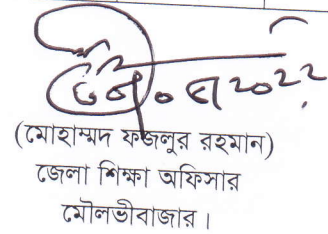 (মোহাম্মদ ফজলুর রহমান)
জেলা শিক্ষা অফিসার
মৌলভীবাজার।